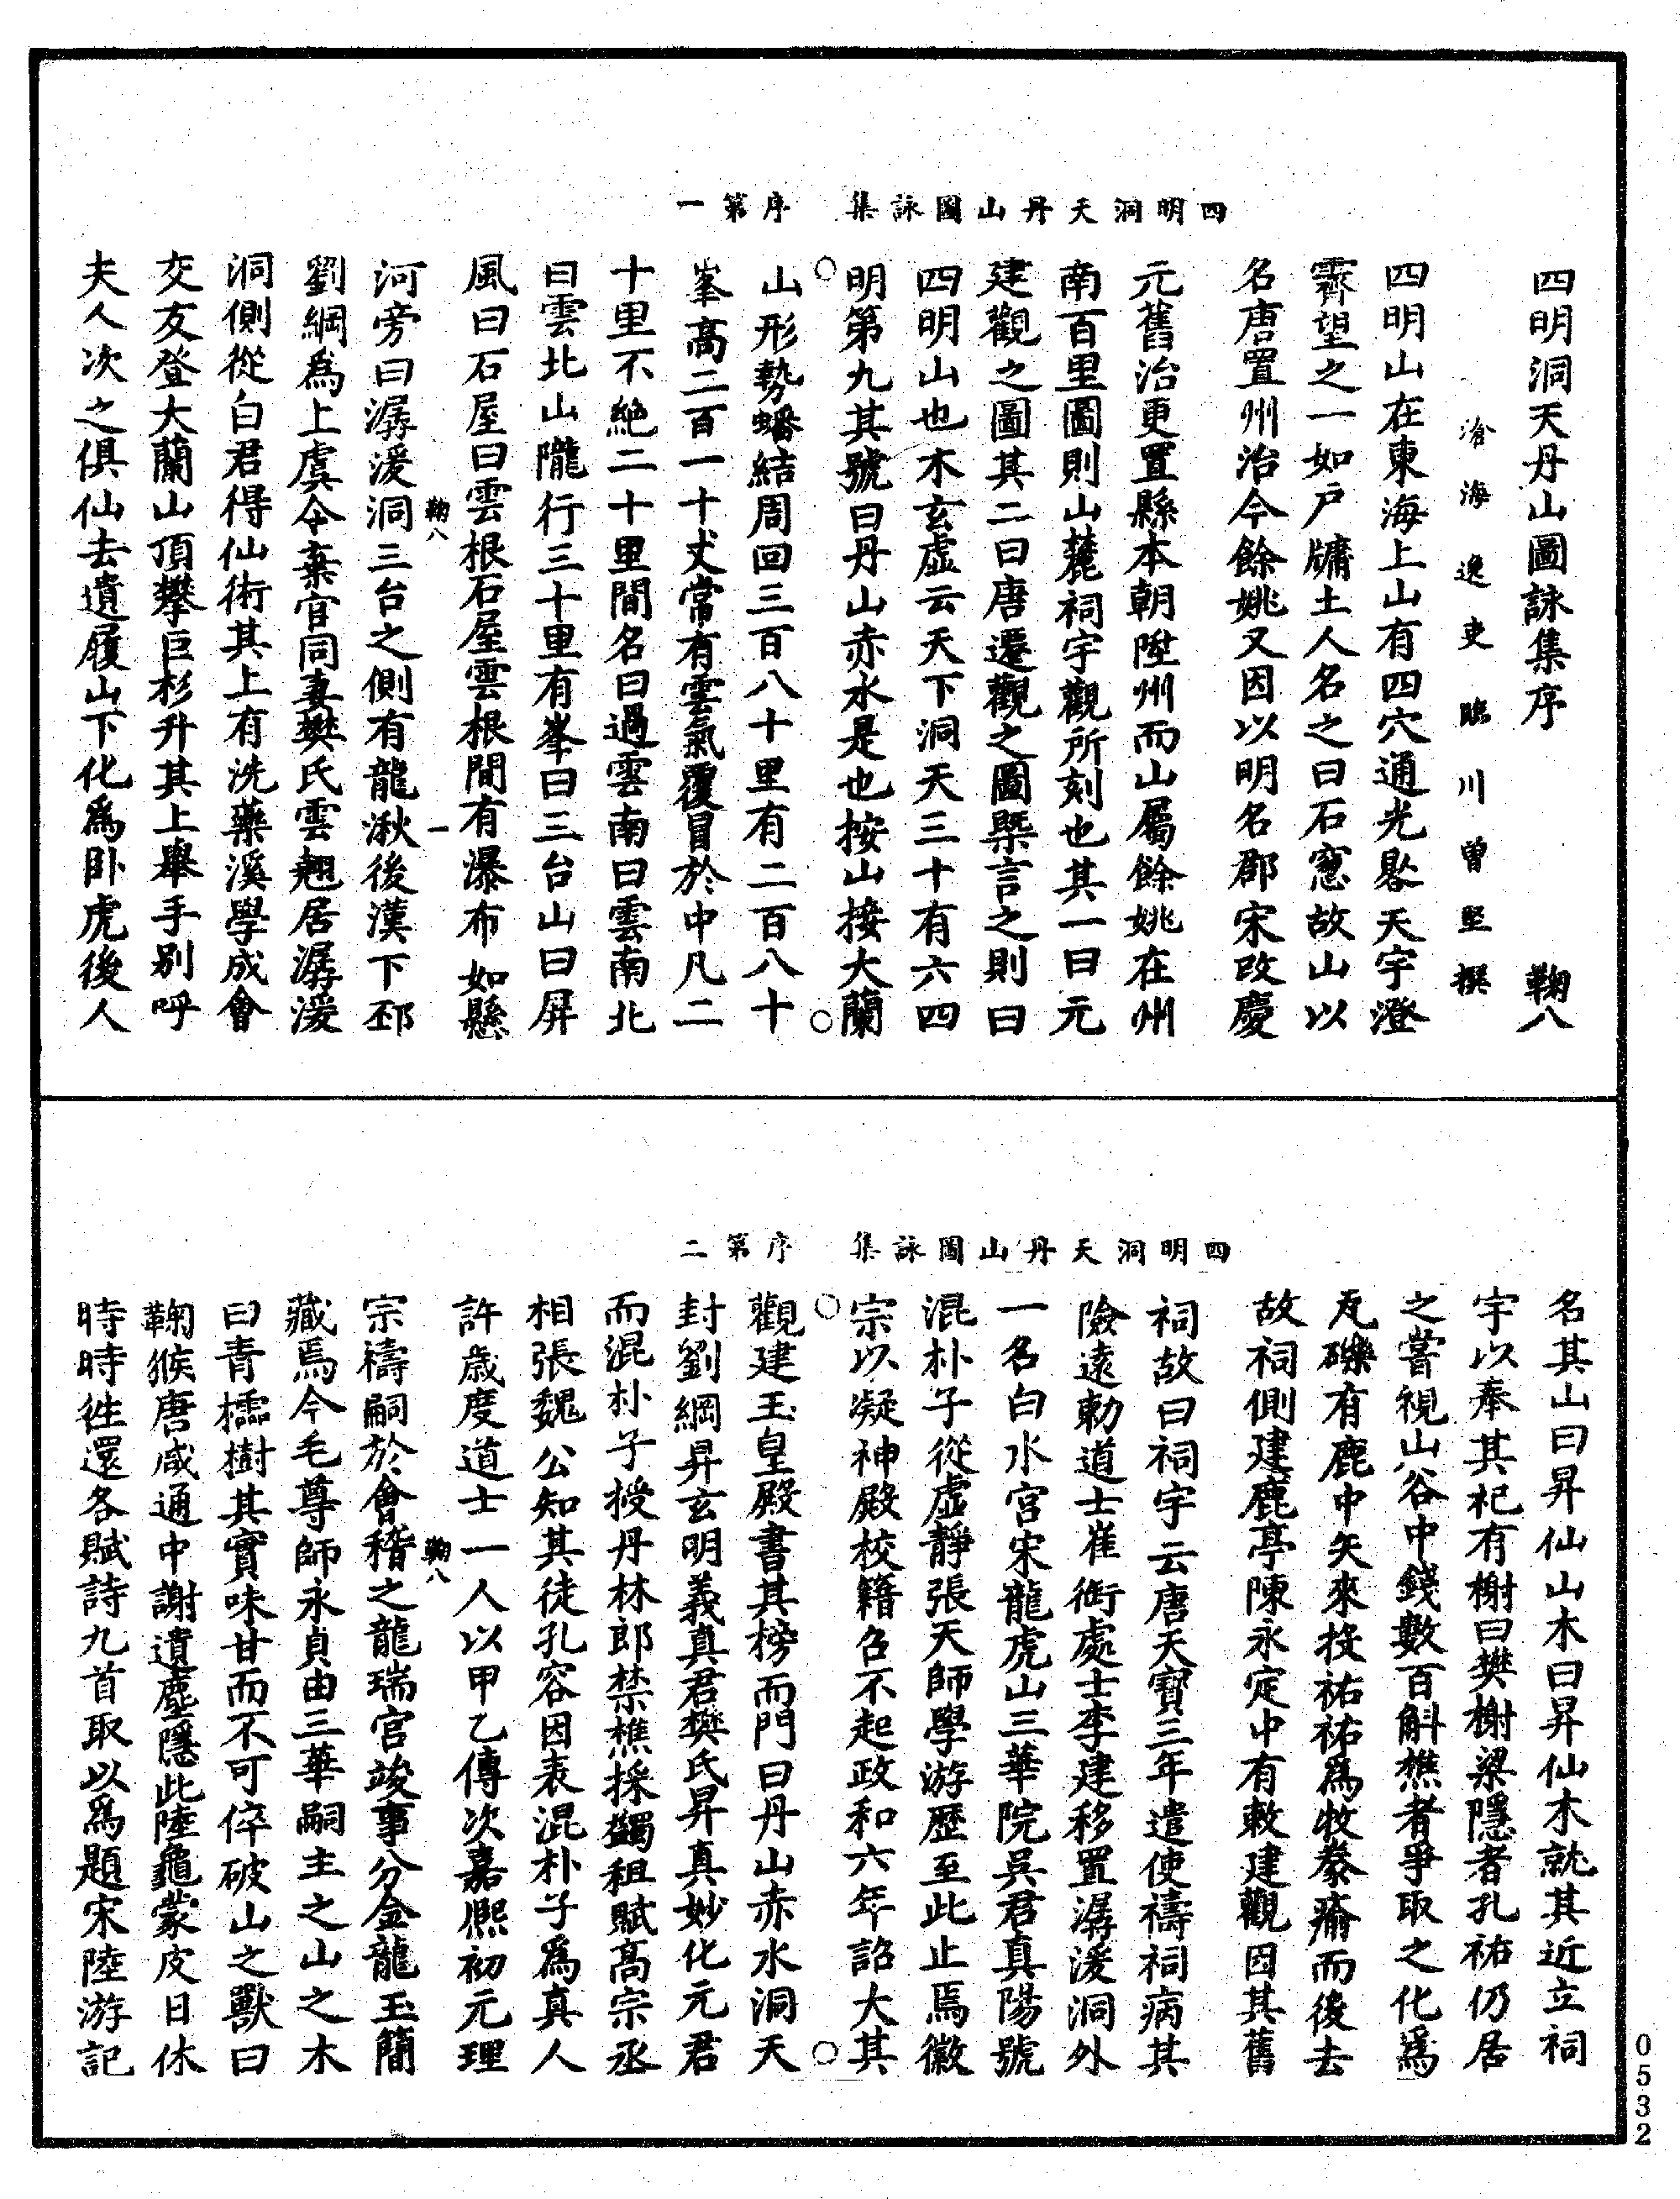 四明洞天丹山圖詠集　序第一
四明洞天丹山圖詠集序　鞠八
滄海逸吏臨川曾堅撰
四明山在東海上山有四穴通光晷天宇澄
霽望之一如戶牗土人名之曰石窻故山以
名唐置州治今餘姚又因以明名郡宋改慶
元舊治更置縣本朝陞州而山屬餘姚在州
南百里圖則山麓祠宇觀所刻也其一曰元
建觀之圖其二曰唐遷觀之圖槩言之則曰
四明山也木玄虛云天下洞天三十有六四
明第九其號曰丹山赤水是也按山接大蘭
山形勢蟠結周回三百八十里有二百八十
峯高二百一十丈常有雲氣覆冒於中凡二
十里不絕二十里間名曰過雲南曰雲南北
曰雲北山隴行三十里有峯曰三台山曰屏
風曰石屋曰雲根石屋雲根間有瀑布如懸
鞠八　一
河旁曰潺湲洞三台之側有龍湫後漢下邳
劉綱爲上虞令棄官同妻樊氏雲翹居潺湲
洞側從白君得仙術其上有洗藥溪學成會
交友登大蘭山頂攀巨杉升其上舉手別呼
夫人次之俱仙去遺履山下化爲卧虎後人
四明洞天丹山圖詠集　序第二
名其山曰昇仙山木曰昇仙木就其近立祠
宇以奉其祀有榭曰樊榭梁隱者孔祐仍居
之嘗視山谷中錢數百斛樵者爭取之化爲
瓦礫有鹿中矢來投祐祐爲牧養瘉而後去
故祠側建鹿亭陳永定中有敕建觀因其舊
祠故曰祠宇云唐天寶三年遣使禱祠病其
險遠勅道士崔衒處士李建移置潺湲洞外
一名白水宮宋龍虎山三華院吳君真陽號
混朴子從虛靜張天師學游歷至此止焉徽
宗以凝神殿校籍召不起政和六年詔大其
觀建玉皇殿書其榜而門曰丹山赤水洞天
封劉綱昇玄明義真君樊氏昇真妙化元君
而混朴子授丹林郎禁樵採蠲租賦高宗丞
相張魏公知其徒孔容因表混朴子爲真人
許歲度道士一人以甲乙傳次嘉熙初元理
鞠八
宗禱嗣於會稽之龍瑞宮竣事分金龍玉簡
藏焉今毛尊師永貞由三華嗣主之山之木
曰青櫺樹其實味甘而不可倅破山之獸曰
鞠猴唐咸通中謝遺塵隱此陸龜蒙皮日休
時時徃還各賦詩九首取以爲題宋陸游記
0532